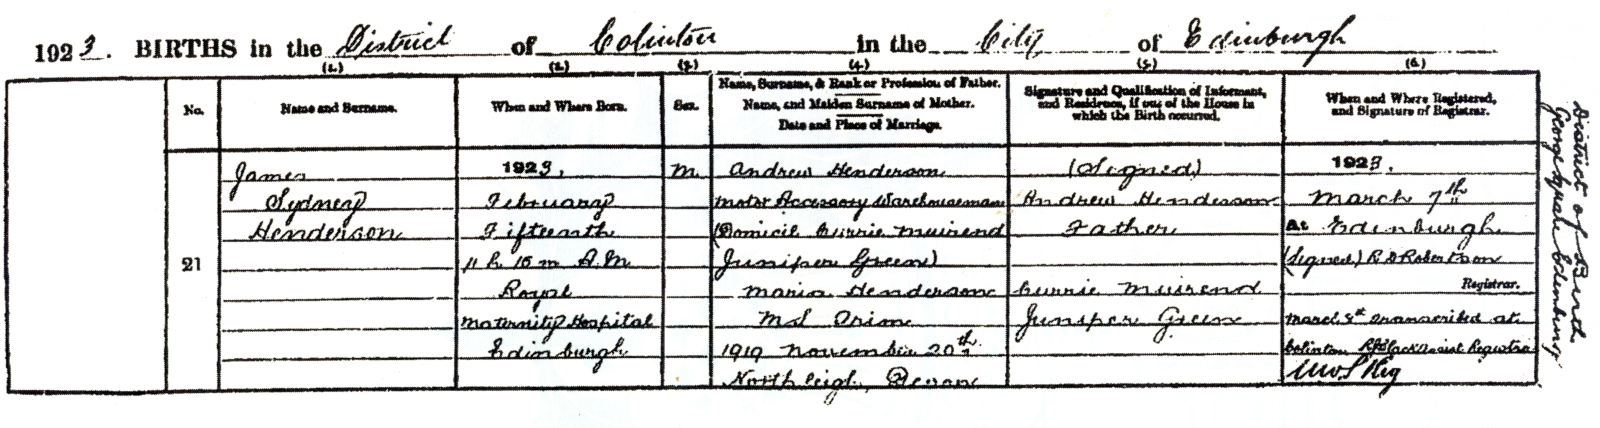 1923. BIRTHS in the District of Colinton in the City of Edinburgh
(1.) (2.) (3.) (4.) (5.) (6.)
No.
Name and Surname.
When and Where Born.
Sex.
Name, Surname, & Rank or Profession of Father.
Name, and Maiden Surname of Mother.
Date and Place of Marriage.
Signature and Qualification of Informant,
and Residence, if out of the House in
which the Birth occurred.
When and Where Registered,
and Signature of Registrar.
21
James
Sydney
Henderson
1923,
February
Fifteenth
11 h 15 m A.M
Royal
Maternity Hospital
Edinburgh
M
Andrew Henderson
Motor Accessory Warehouseman
(Domicil Currie Muirend
Juniper Green)
Maria Henderson
M.S Prim
1919 November 20th
Northleigh, Devon
(Signed)
Andrew Henderson
Father
Currie Muirend
Juniper Green
1923.
March 7th
At Edinburgh
(Signed) R D Robertson
Registrar.
March 8th Transcribed at
Colinton Assist Registrar
District of Birth
George Square Edinburgh